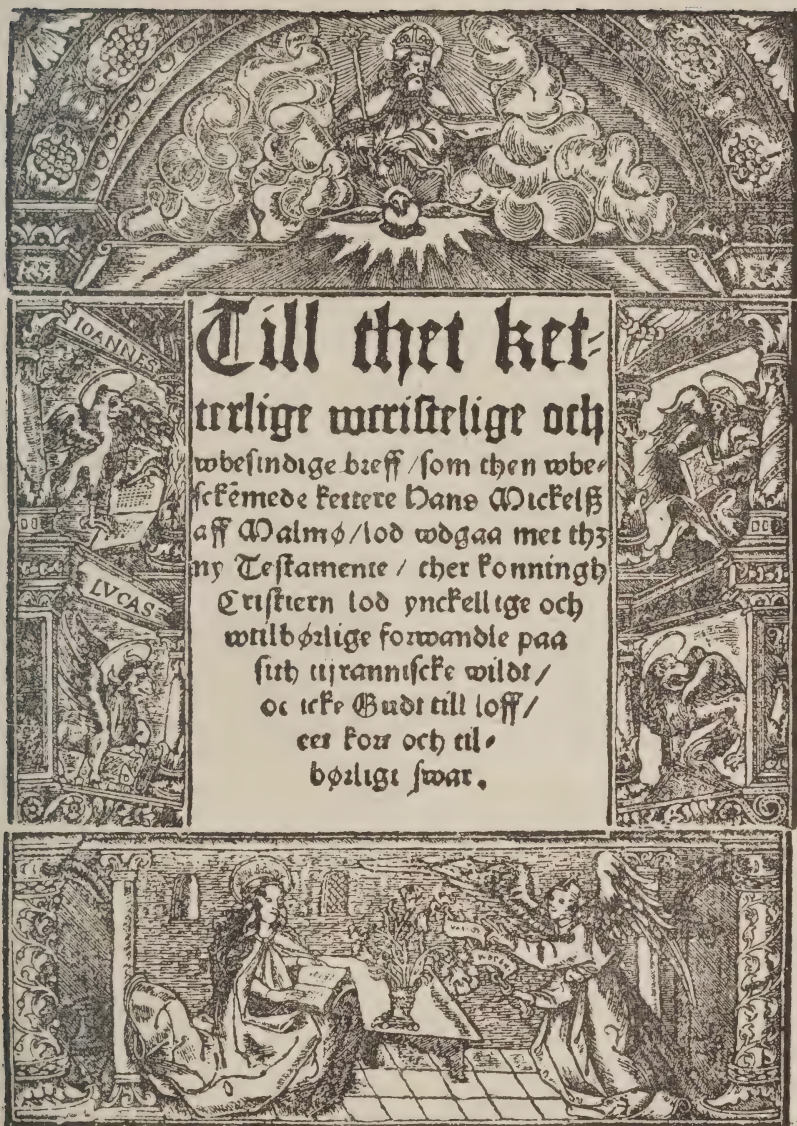 IOANNES
LVCAS
Till thet ket⸗
terlige wcristelige och
wbesindige breff / som then wbe⸗
sckēmede kettere Hans Mickelß
aff Malmø / lod wdgaa met thꝫ
ny Testamente / ther konningh
Cristiern lod ynckellige och
wtilbørlige forwandle paa
sith tijranniscke wildt /
oc icke Gudt till loff /
eet kort och til⸗
børligt swar.